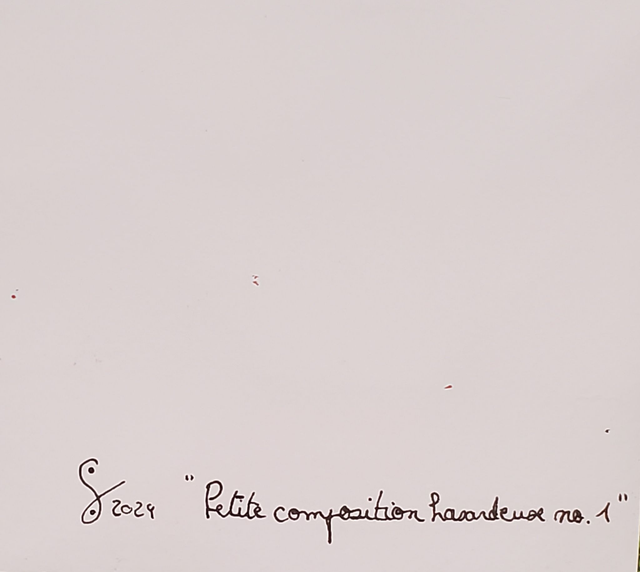 2024 "Petite composition hasardeuse no. 1"